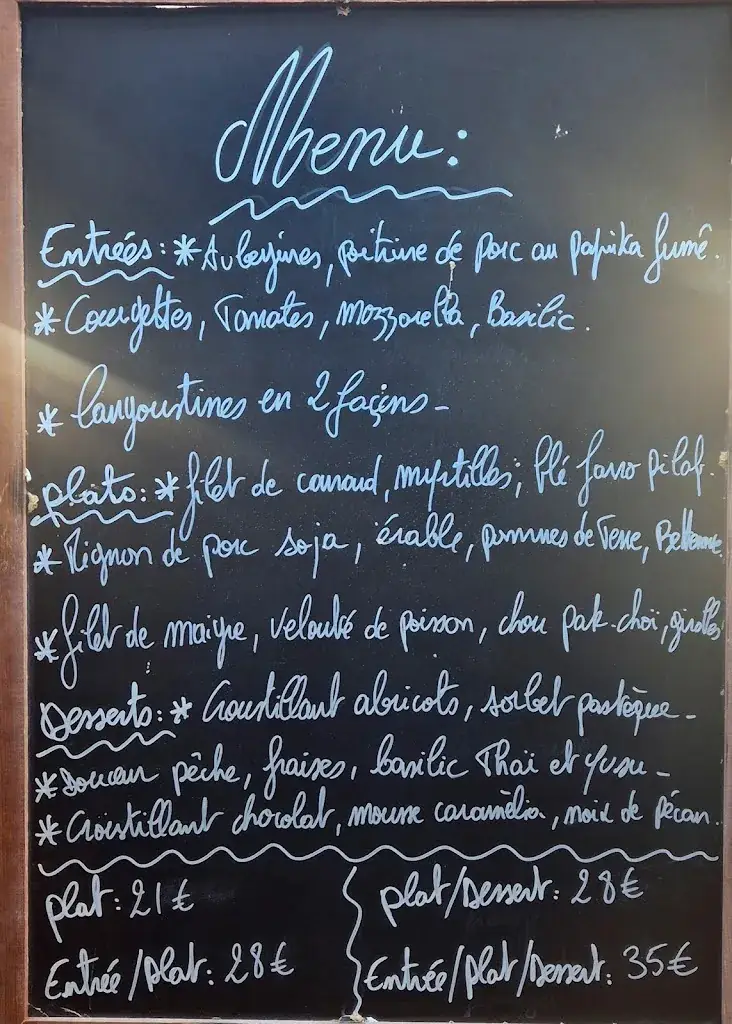 Menu:
Entrées: * Aubergines, poitrine de porc au paprika fumé.
* Courgettes, Tomates, mozzarella, Basilic.
* langoustines en 2 façons-
plats: * filet de canard, myrtilles; blé farro pilaf.
* Rignon de porc soja, érable, pommes de Terre, Betterave
* filet de maigre, velouté de poisson, chou pak-choï, girolles
Desserts: * Croustillant abricots, sorbet pastèque-
* Douceur pêche, fraises, basilic Thaï et yusu-
* Croustillant chocolat, mousse caramélia, noix de pécan.
plat: 21€
plat/Dessert: 28€
Entrée/plat: 28€
Entrée/plat/Dessert: 35€